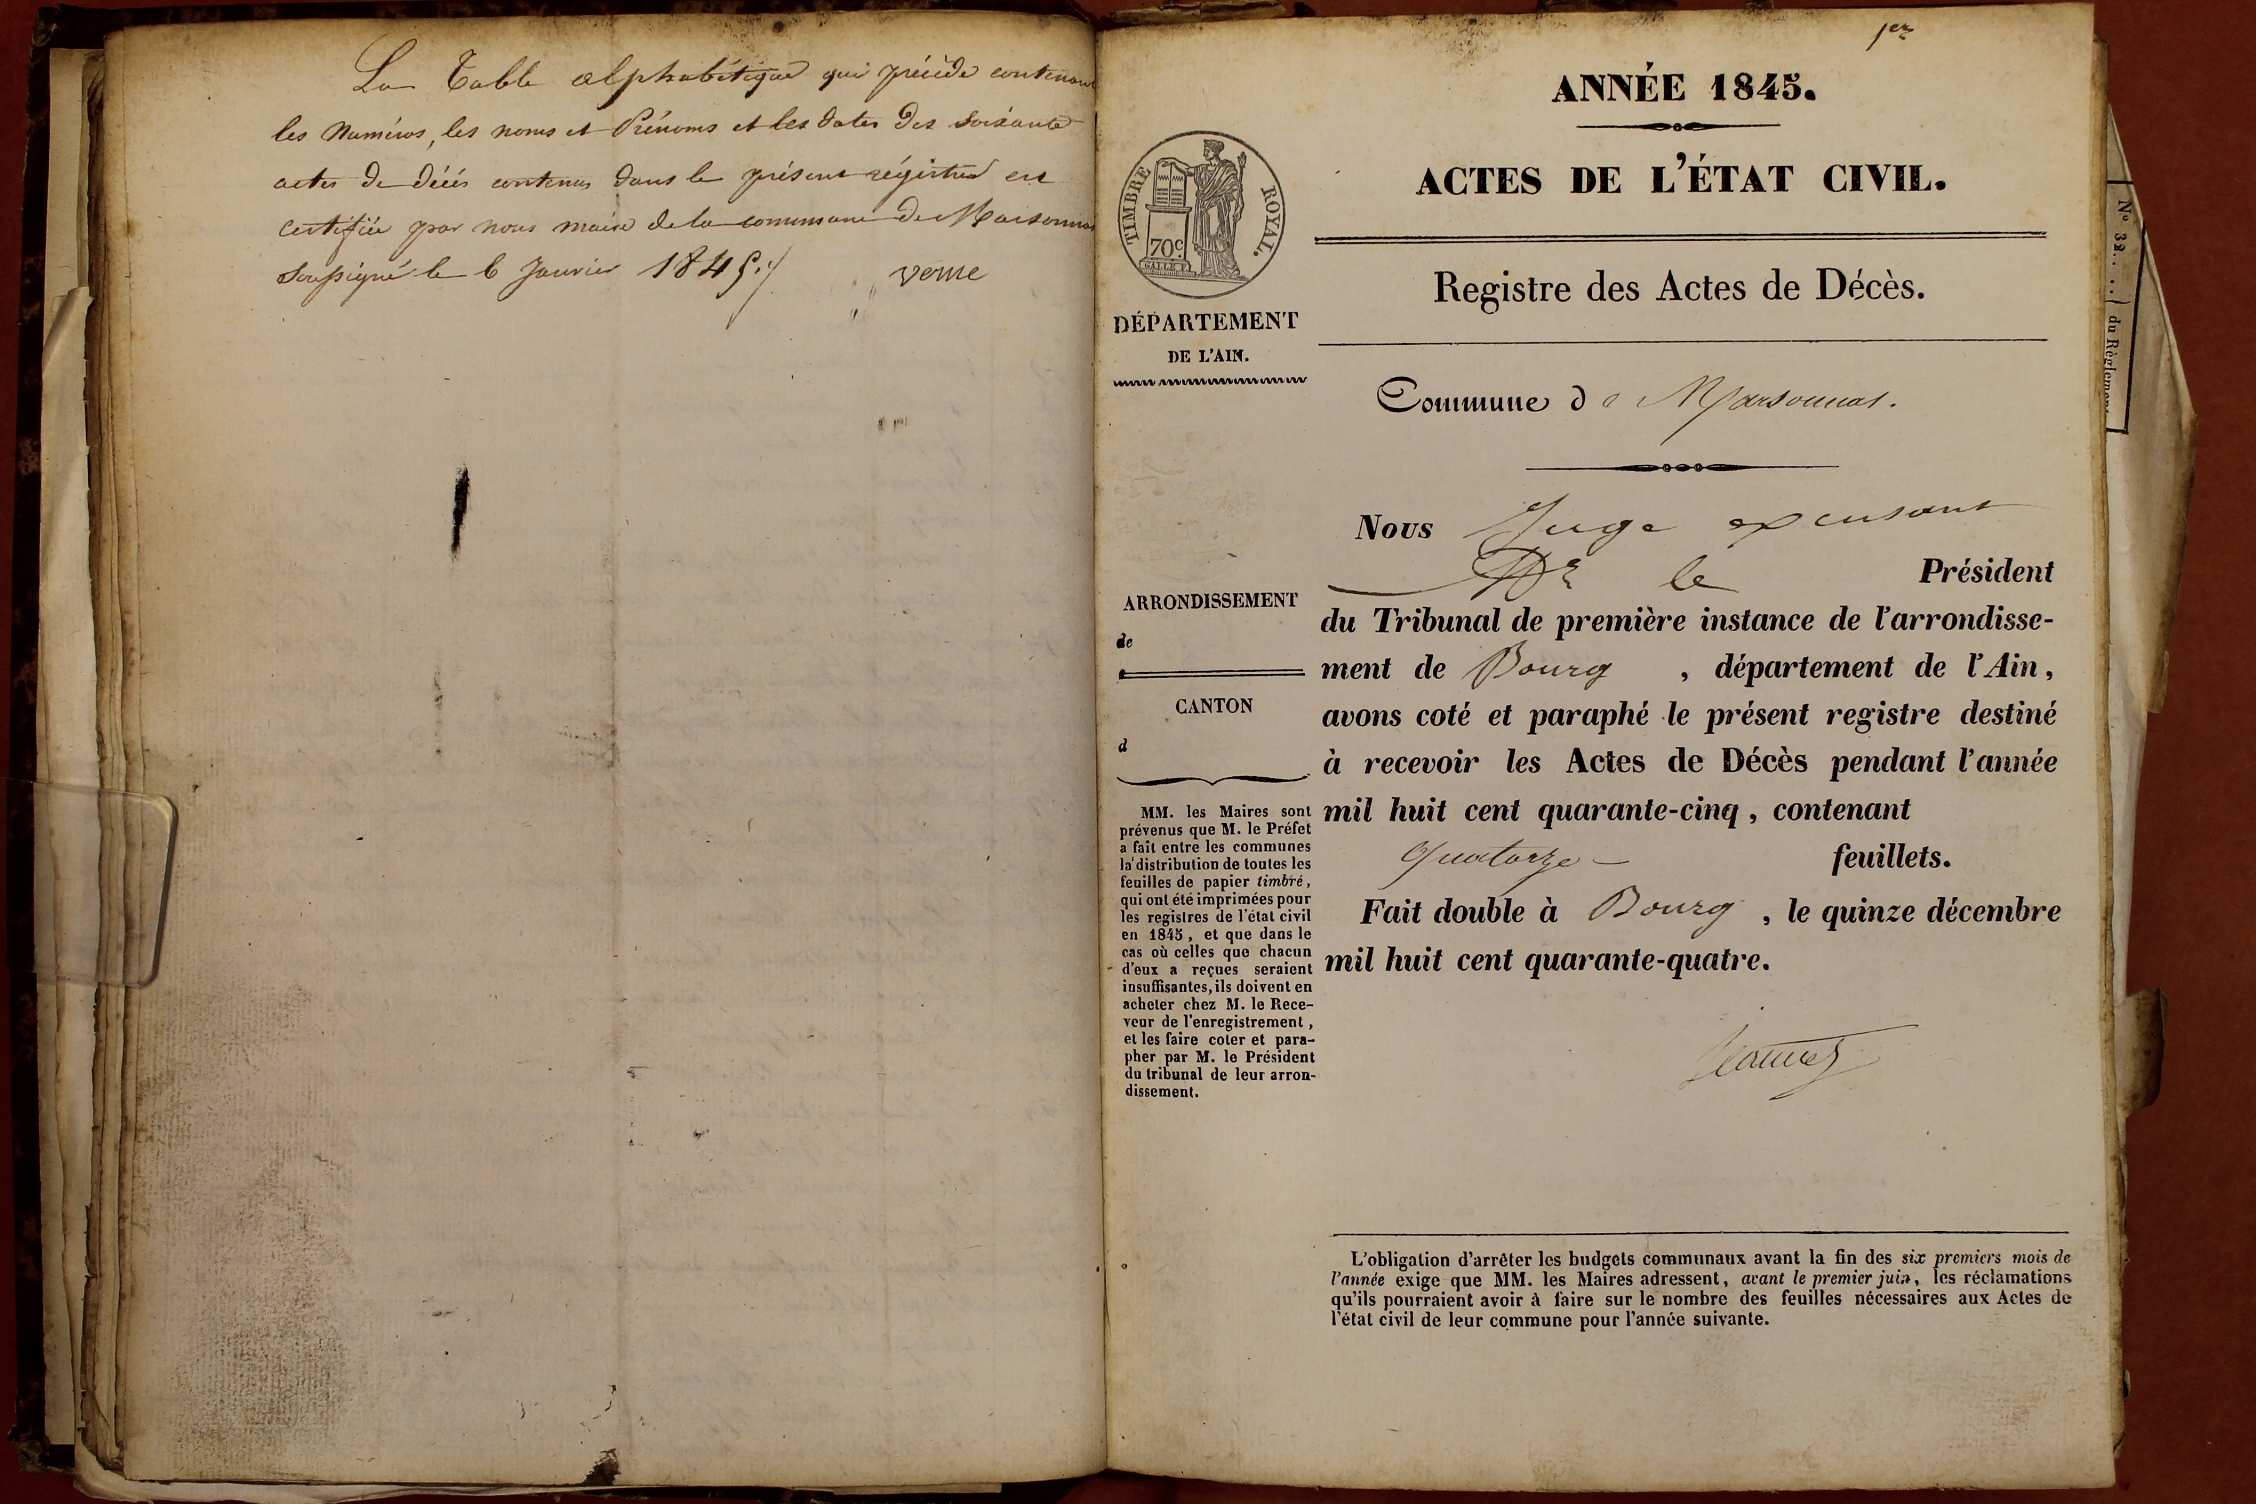 La Table alphabétique qui précède contenant
les Numéros, les noms et Prénoms et les dates des soixante
actes de décès contenus dans le présent régistre est
certifiée par nous maire de la commune de Marsonnas
soussigné le 6 Janvier 1845 ./ verne
1er
ANNÉE 1845.
ACTES DE L'ÉTAT CIVIL.
Registre des Actes de Décès.
TIMBRE ROYAL.
70c.
DÉPARTEMENT
DE L'AIN.
Commune de Marsonnas.
Nous Juge excusant
Mr le Président
du Tribunal de première instance de l'arrondisse-
ment de Bourg , département de l'Ain,
avons coté et paraphé le présent registre destiné
à recevoir les Actes de Décès pendant l'année
mil huit cent quarante-cinq, contenant
Quatorze feuillets.
Fait double à Bourg , le quinze décembre
mil huit cent quarante-quatre.
ARRONDISSEMENT
de
CANTON
d
MM. les Maires sont
prévenus que M. le Préfet
a fait entre les communes
la distribution de toutes les
feuilles de papier timbré,
qui ont été imprimées pour
les registres de l'état civil
en 1845, et que dans le
cas où celles que chacun
d'eux a reçues seraient
insuffisantes, ils doivent en
acheter chez M. le Rece-
veur de l'enregistrement,
et les faire coter et para-
pher par M. le Président
du tribunal de leur arron-
dissement.
L'obligation d'arrêter les budgets communaux avant la fin des six premiers mois de
l'année exige que MM. les Maires adressent, avant le premier juin, les réclamations
qu'ils pourraient avoir à faire sur le nombre des feuilles nécessaires aux Actes de
l'état civil de leur commune pour l'année suivante.
No 32...
du Règlement